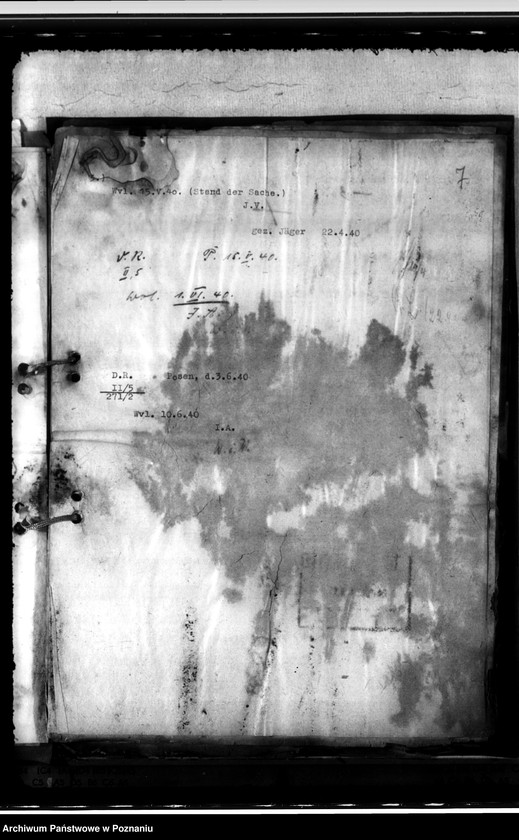 7
Wvl. 15.V.40. (Stand der Sache.)
J.V.
gez. Jäger 22.4.40
D.R. P. 16.V.40.
II/5
1.VI.40.
J.A.
D.R. Posen, d.3.6.40
II/5
271/2
Wvl. 10.6.40
I.A.
Archiwum Państwowe w Poznaniu